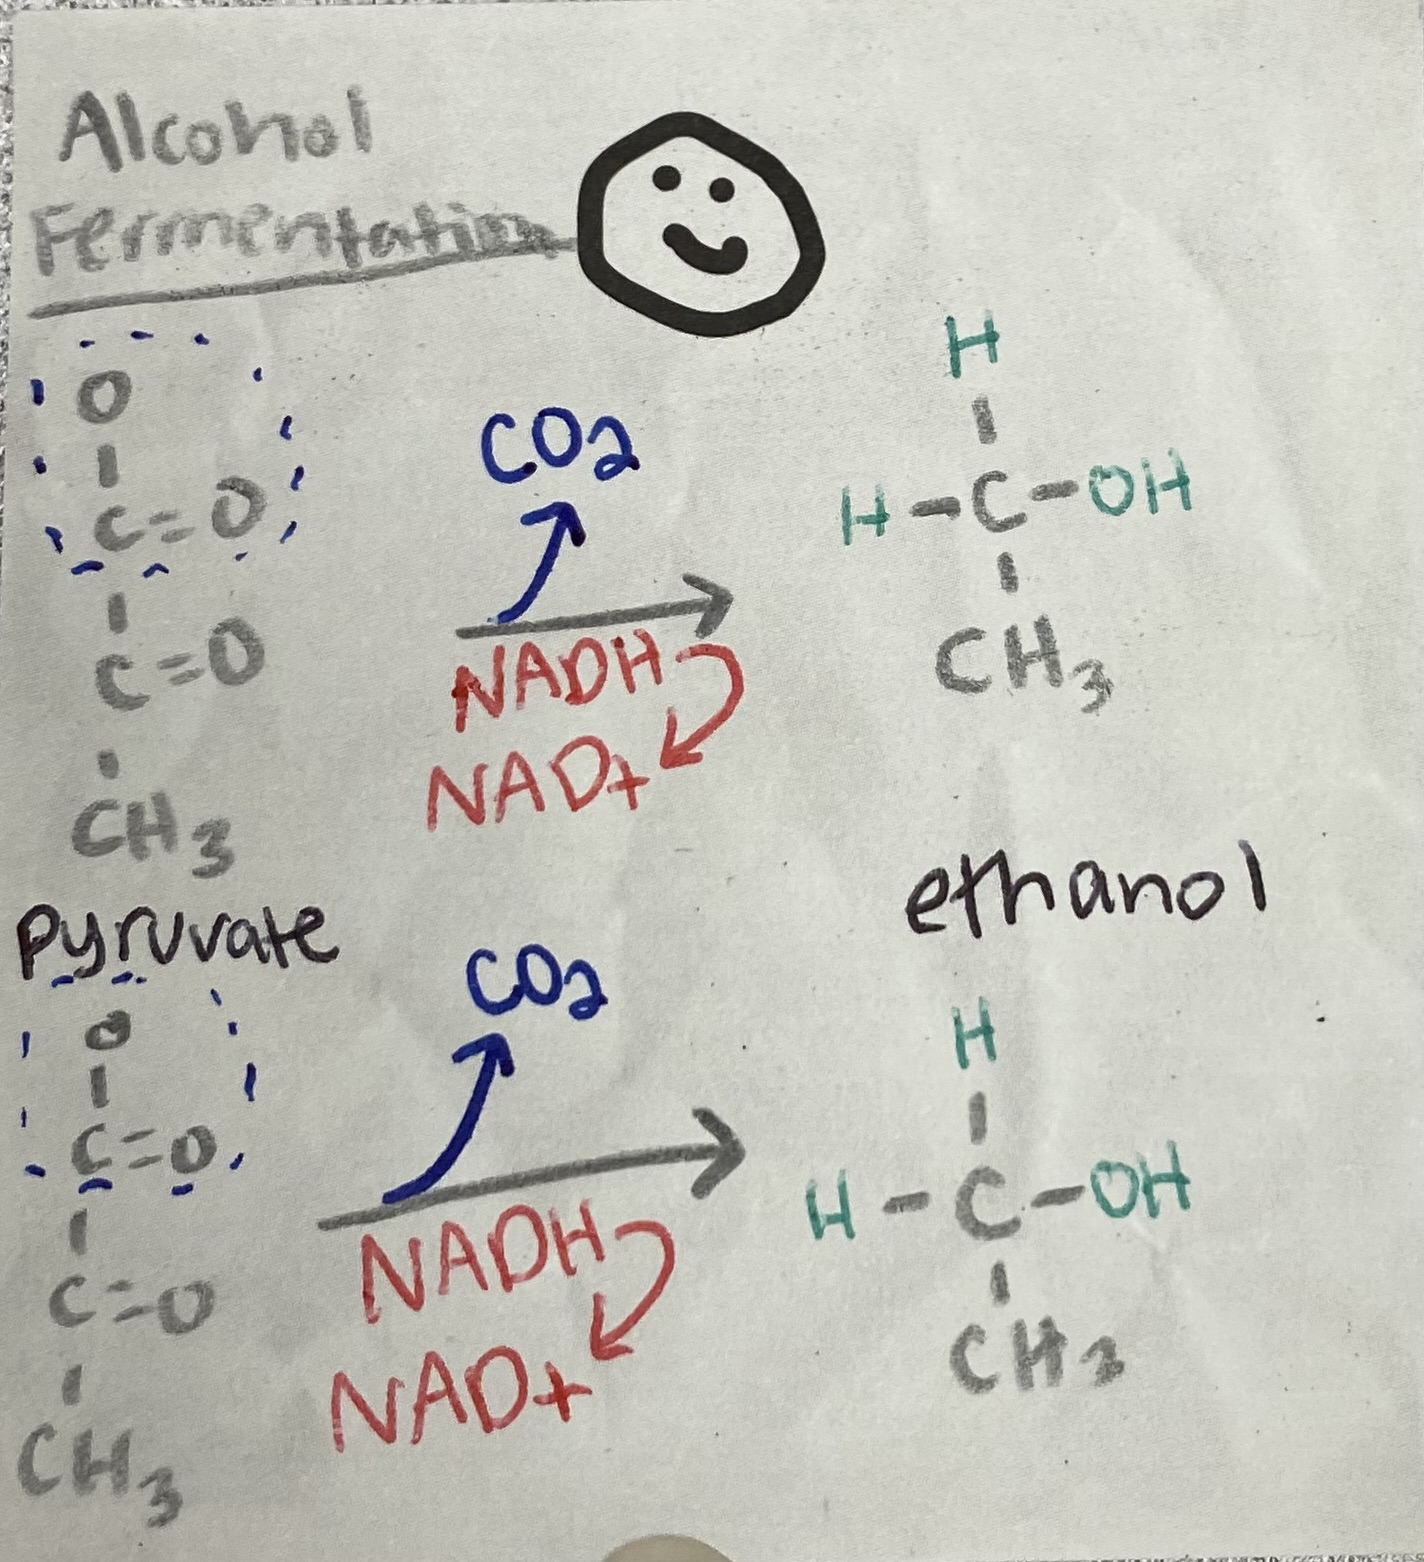 Alcohol
Fermentation
O
C=O
C=O
CH3
Pyruvate
CO2
NADH
NAD+
H
H-C-OH
CH3
ethanol
O
C=O
C=O
CH3
CO2
NADH
NAD+
H
H-C-OH
CH3